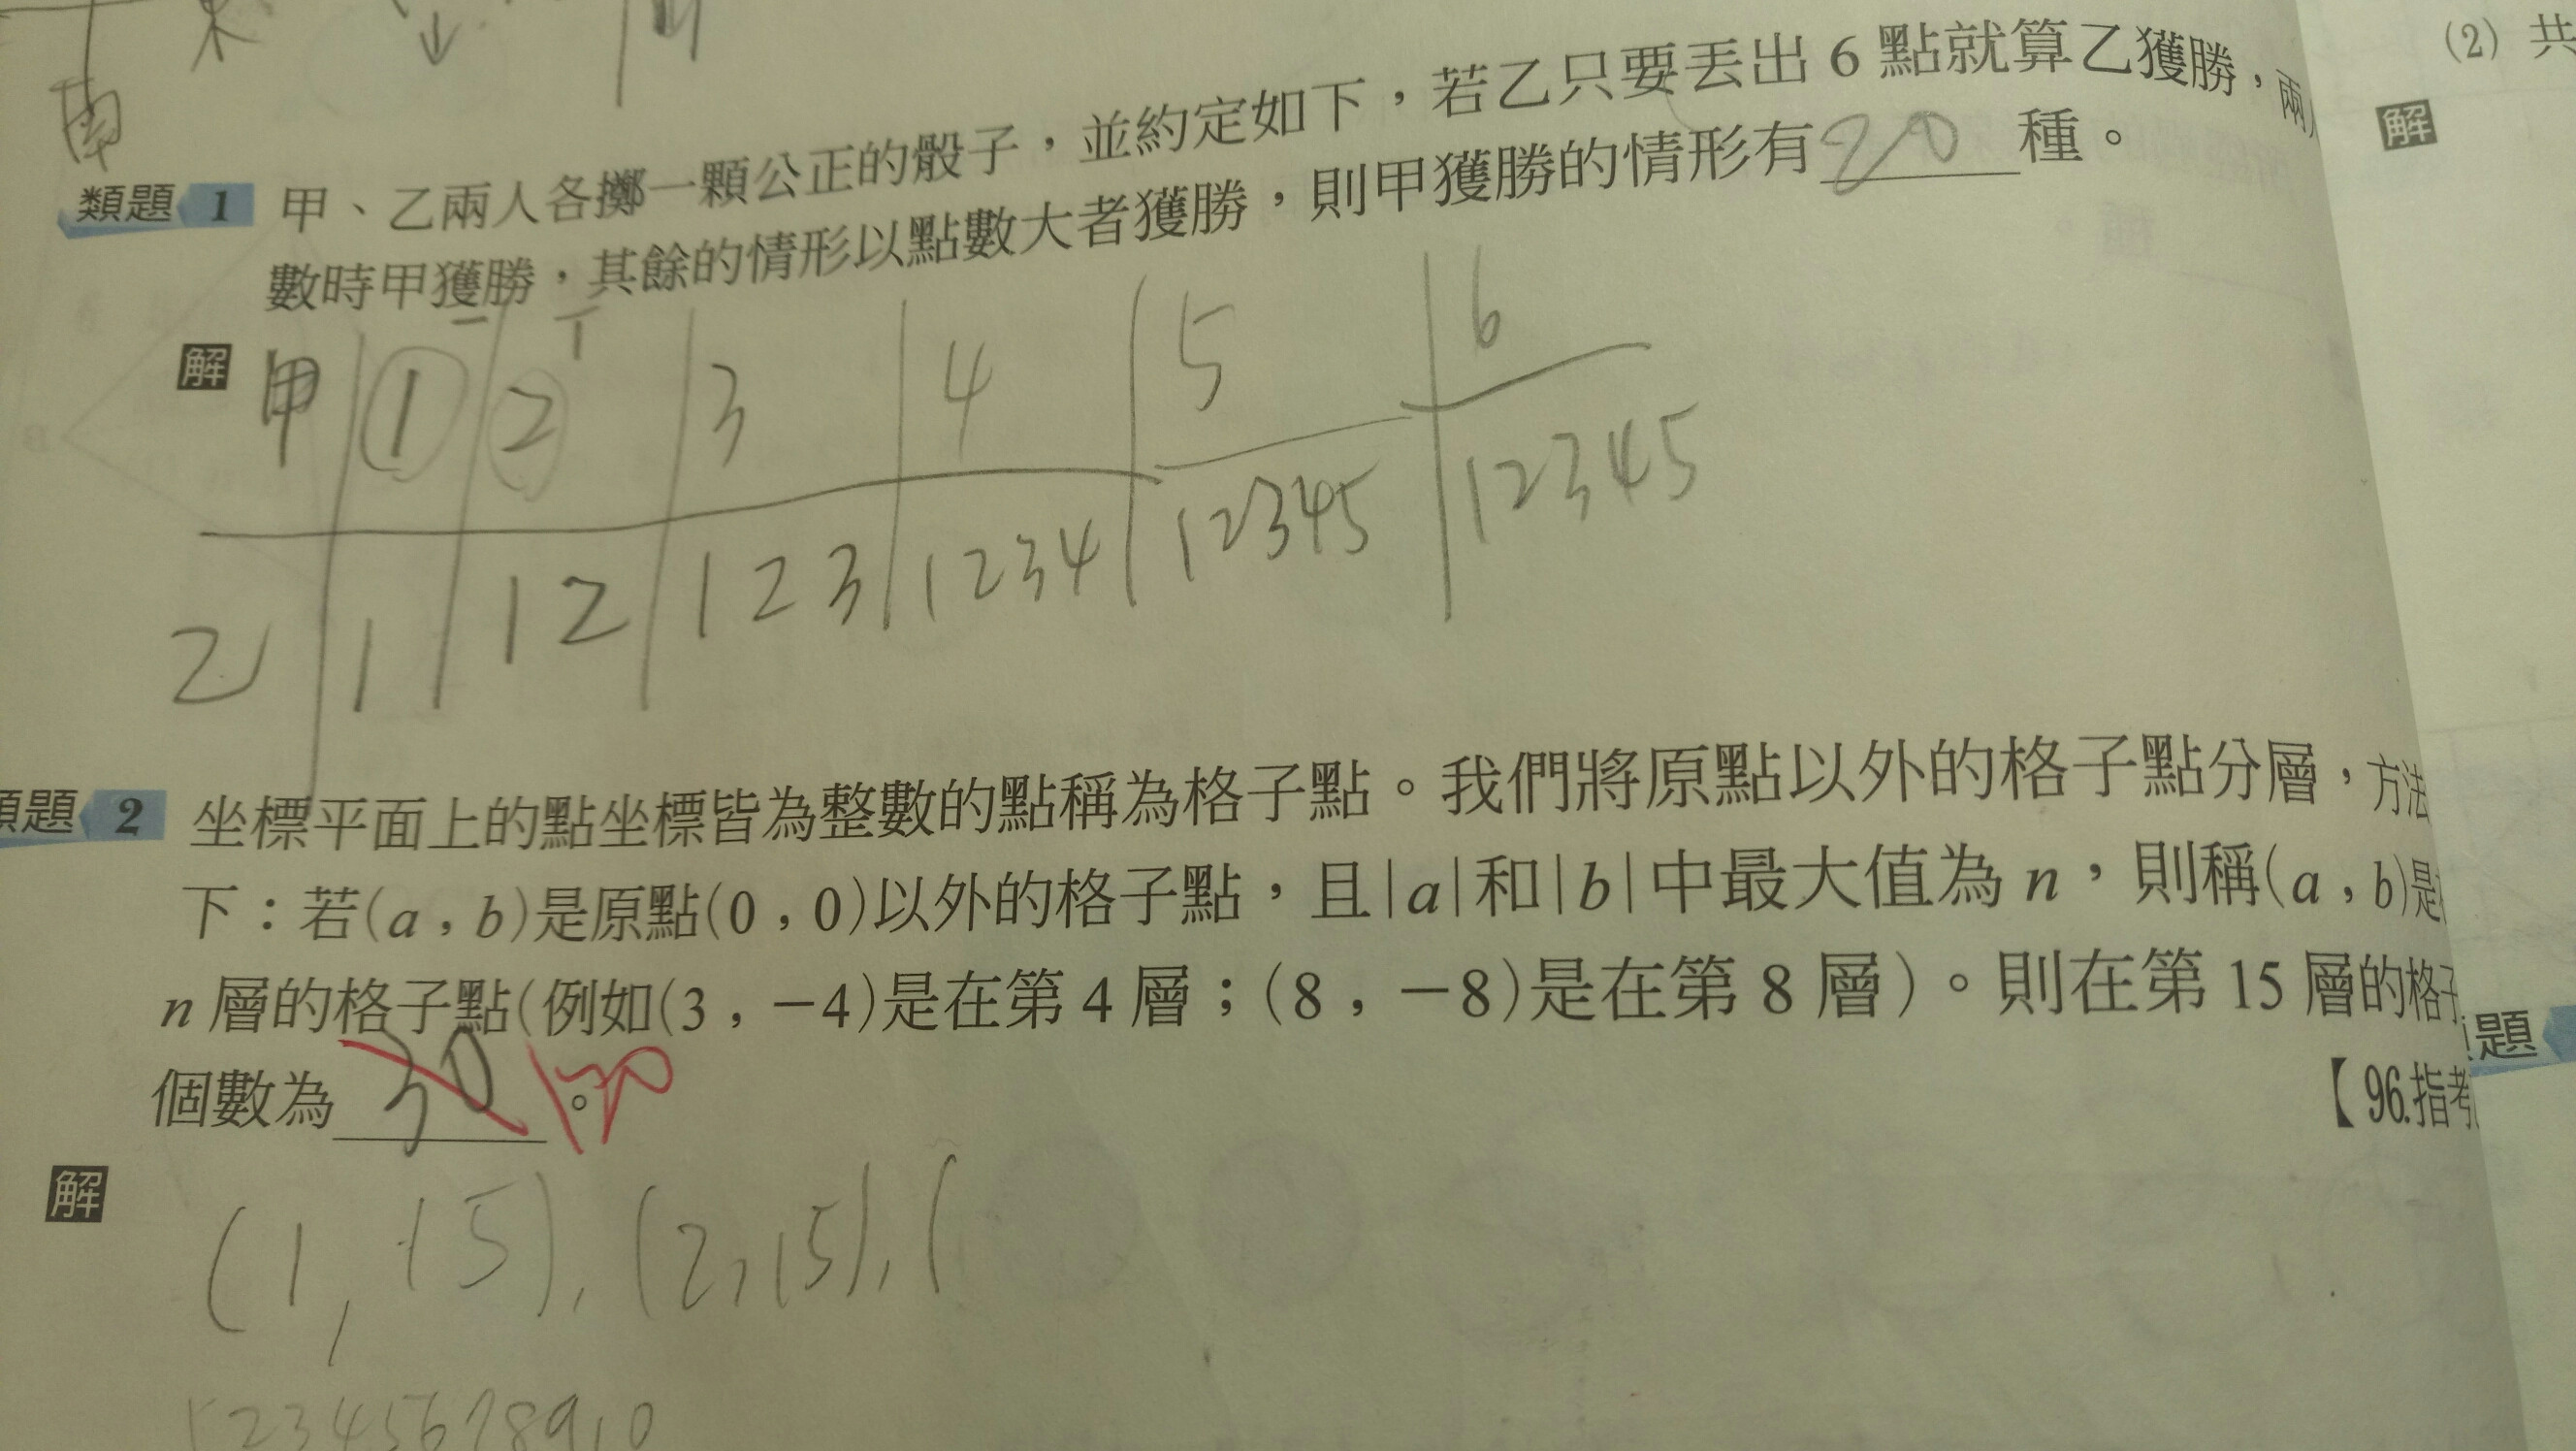 (2) 共
解
南
類題 1 甲、乙兩人各擲一顆公正的骰子，並約定如下，若乙只要丟出 6 點就算乙獲勝，兩
數時甲獲勝，其餘的情形以點數大者獲勝，則甲獲勝的情形有 20 種。
解 甲 1 2 3 4 5 6
乙 1 12 123 1234 12345 12345
類題 2 坐標平面上的點坐標皆為整數的點稱為格子點。我們將原點以外的格子點分層，方法
下：若(a , b)是原點(0 , 0)以外的格子點，且|a|和|b|中最大值為 n，則稱(a , b)是
n 層的格子點(例如(3 , −4)是在第 4 層；(8 , −8)是在第 8 層)。則在第 15 層的格子
個數為 30 。 120
題
【96.指考
解
(1, 15), (2, 15), (
12345678910